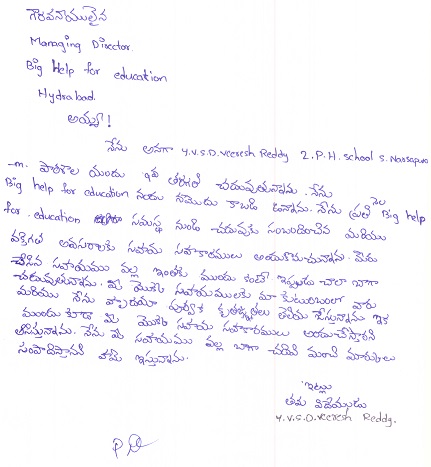 గౌరవనీయులైన
Managing Director
Big Help for education
Hydrabad.
అయ్యా!
నేను అనగా Y.V.S.D.Veeresh Reddy Z.P.H. school S. Narsapura
-m. పాఠశాల యందు 9వ తరగతి చదువుతున్నాను. నేను
Big help for education నందు నమోదు కాబడి ఉన్నాను. నేను ప్రతి నెల Big help
for education సమస్థ నుండి చదువుకు సంబందించిన మరియు
వక్తిగత అవసరాలకు సహాయ సహాకారములు అందుకుంటున్నాను. మీరు
చేసిన సహాయము వల్ల ఇంతకు ముందు కంటే ఇప్పుడు చాలా బాగా
చదువుతున్నాను. మీ యొక్క సహాయములకు మా కుటుంబంలో వారు
మరియు నేను హృదయ పూర్వక కృతజ్ఞతలు తెలియ చేస్తున్నాను ఇక
ముందు కూడా మీ యొక్క సహాయ సహాకారములు అందుచేస్తారని
ఆశిస్తున్నాను. నేను మీ సహాయము వల్ల బాగా చదివి మంచి మార్కులు
సంపాదిస్తానని హామీ ఇస్తున్నాను.
ఇట్లు
తమ విదేయుడు
Y.V.S.D.Veeresh Reddy.